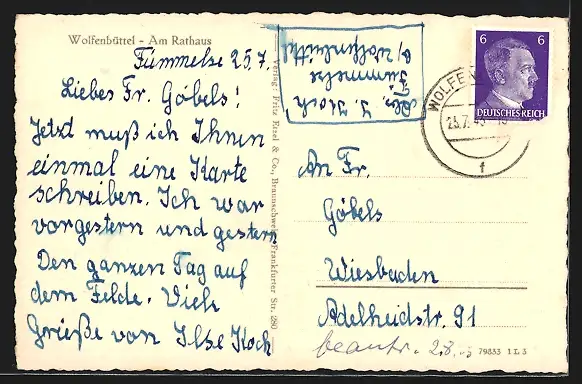 Wolfenbüttel - Am Rathaus
Fümmelse 25.7.
Liebes Fr. Göbels!
Jetzt muß ich Ihnen
einmal eine Karte
schreiben. Ich war
vorgestern und gestern
Den ganzen Tag auf
dem Felde. Viele
Grieße von Ilse Koch
Verlag: Fritz Etzel & Co., Braunschweig, Frankfurter Str. 280
Abs. I. Koch
Fümmelse
ü/ Wolfenbüttel
6 6
DEUTSCHES REICH
WOLFEN
25.7.43
f
An Fr.
Göbels
Wiesbaden
Adelheidstr. 91
beantw. 2.8.
79833 1 L 3